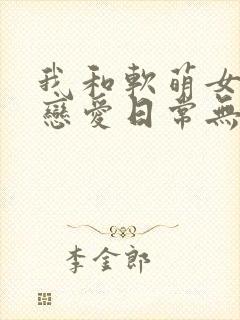 我和軟萌女
戀愛日常無
李金郎